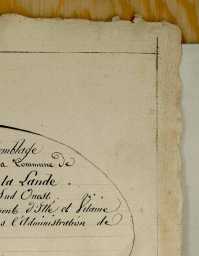 emblage
la Commune de
la Lande
Sud Ouest
ment d'Ille et Vilaine
s l'Administration de